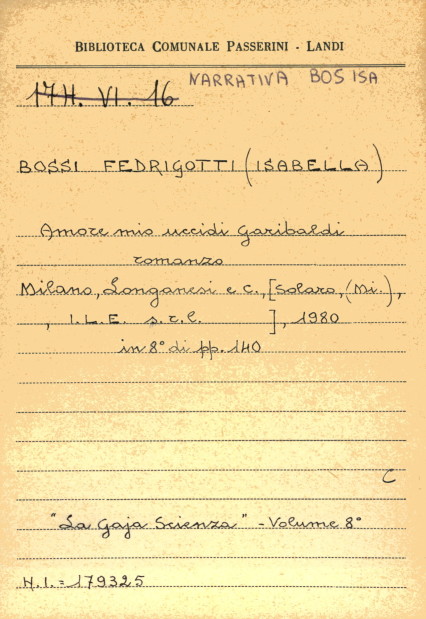 BIBLIOTECA COMUNALE PASSERINI - LANDI
17H. VI. 16 NARRATIVA BOS ISA
BOSSI FEDRIGOTTI (ISABELLA)
Amore mio uccidi Garibaldi
romanzo
Milano, Longanesi e C., [Solaro, (Mi.),
, I.L.E. s.r.l. ], 1980
in 8° di pp. 140
C
"La Gaja Scienza" - Volume 8°
N.I. = 179325